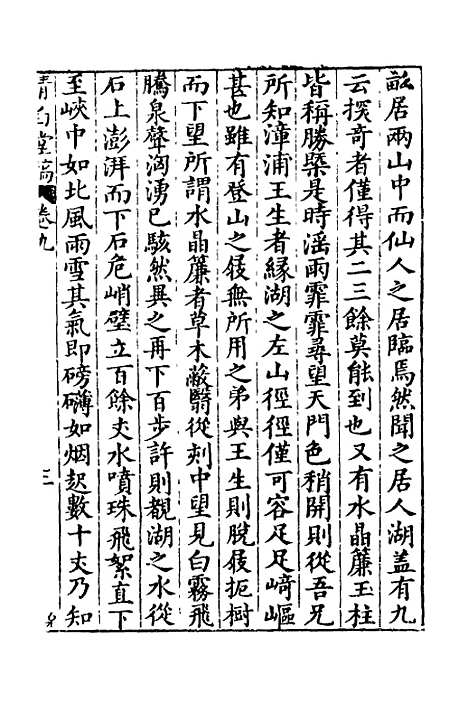 畝居兩山中而仙人之居臨焉然聞之居人湖蓋有九
云探奇者僅得其二三餘莫能到也又有水晶簾玉柱
皆稱勝槩是時滛雨霏霏尋望天門色稍開則從吾兄
所知漳浦王生者緣湖之左山徑徑僅可容足足﨑嶇
甚也雖有登山之屐無所用之弟與王生則脫屐扼樹
而下望所謂水晶簾者草木蔽翳從刺中望見白霧飛
騰泉聲洶湧已駭然異之再下百步許則覩湖之水從
石上澎湃而下石危峭壁立百餘丈水噴珠飛絮直下
至峽中如北風雨雪其氣即磅礴如烟起數十丈乃知
清白堂稿 卷九 三